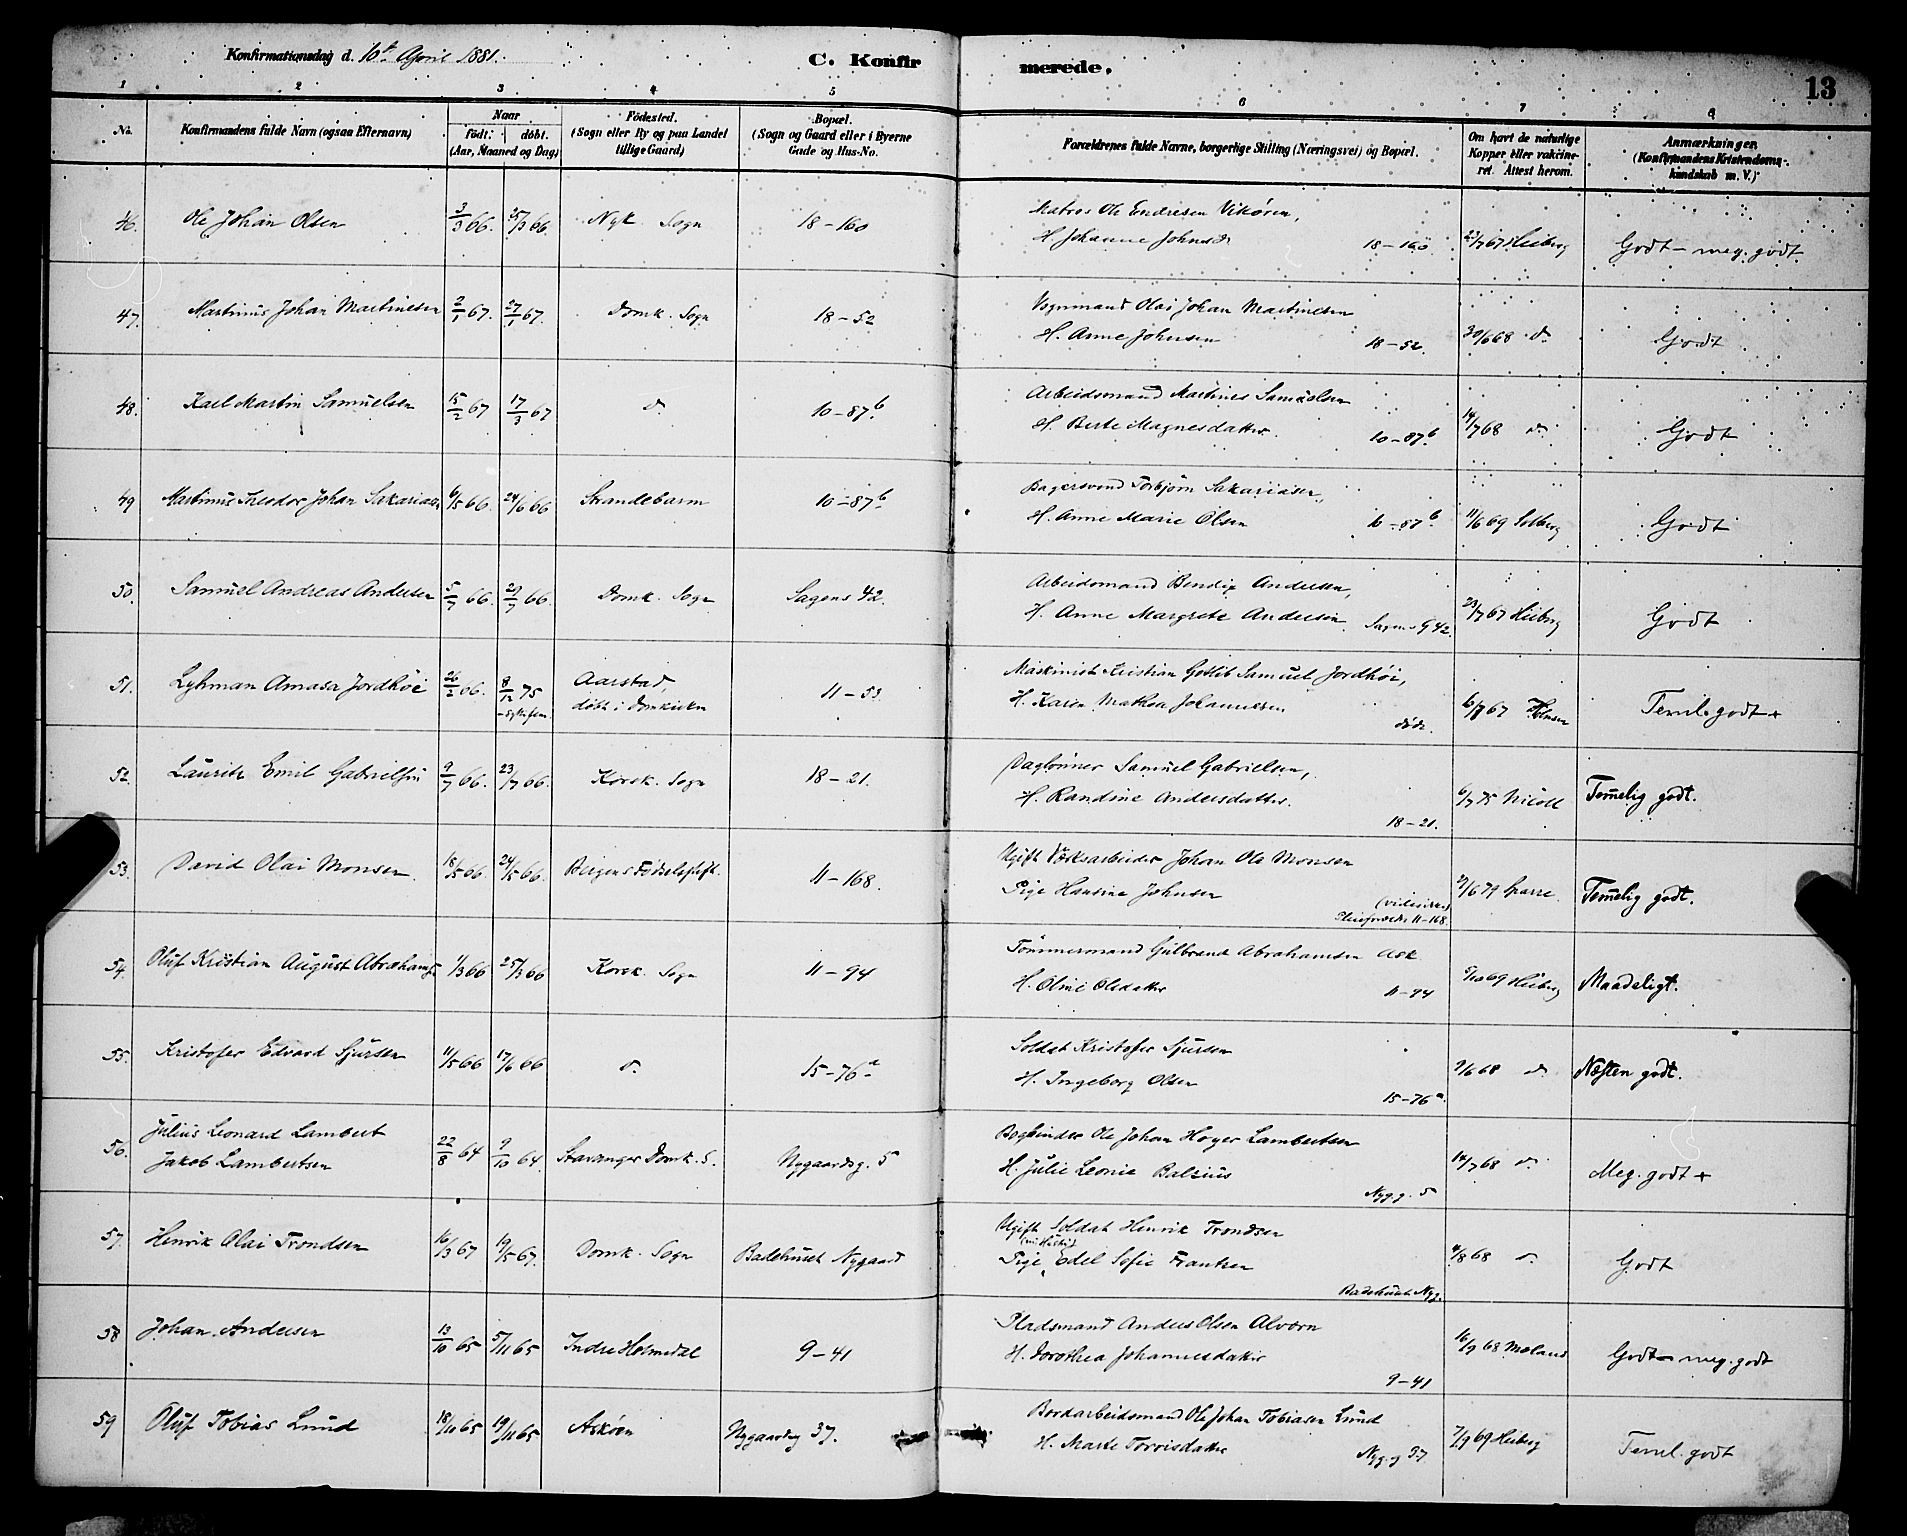 Konfirmationsdag d. 10de April 1881.
C. Konfirmerede.
13
1 2 3 4 5 6 7 8
No.
Konfirmandens fulde Navn (ogsaa Efternavn)
Naar
født. døbt.
(Aar, Maaned og Dag)
Fødested.
(Sogn eller By og paa Landet
tillige Gaard)
Bopæl.
(Sogn og Gaard eller i Byerne
Gade og Hus-No.
Forældrenes fulde Navne, borgerlige Stilling (Næringsvei) og Bopæl.
Om havt de naturlige
Kopper eller vakcine-
ret. Attest herom.
Anmærkninger.
(Konfirmandens Kristendoms-
kundskab m. V.)
46. Ole Johan Olsen 3/3 66. 25/3 66 Nyk. Sogn 18-160
Matros Ole Endresen Vikören,
H. Johanne Johnsdr 18-160 23/7 67 Heiberg Godt - meg. godt.
47. Martinus Johan Martinesen 2/1 67. 27/1 67. Domk. Sogn 18-52
Vognmand Olai Johan Martinesen
H. Anne Johnsen 18-52. 30/6 68 do. Godt
48. Karl Martin Samuelsen 15/2 67 17/3 67 do. 10-87b
Arbeidsmand Martines Samuelsen
H. Berte Magnesdatter. 10-87b. 14/7 68 do. Godt
49 Martinus Theodor Johan Sakariasen 6/5 66. 24/6 66 Strandebarm 10-87b
Bagersvend Torbjørn Sakariasen,
H. Anne Marie Olsen 10-87b. 11/6 69 Solberg Godt
50. Samuel Andreas Andersen 5/7 66. 29/7 66. Domk. Sogn Sagens 42.
Arbeidsmand Bendix Andersen,
H. Anne Margrete Andersen Sagens G 42 23/7 67 Heiberg Godt
51. Lyhman Amasa Jordhöi 26/2 66. 8/12 75 Aarstad, 11-53
døbt i Domkirken
Maskinist Kristian Gotlib Samuel Jordhöi,
H. Karen Mathea Johannesen död. 6/8 67 Temel. godt +
52. Lauritz Emil Gabrielsen 9/7 66. 23/7 66. Korsk. Sogn 18-21.
Daglönner Samuel Gabrielsen,
H. Randine Andersdatter. 18-21. 6/7 75 Nicoll Temelig godt.
53. David Olai Monsen. 18/5 66 24/5 66. Bergens Fødselsstift. 11-168.
Ugift Værksarbeider Johan Ole Monsen
Pige Hansine Johnsen 11-168. 27/6 74 Sparre. Temelig godt.
54. Oluf Kristian August Abrahamsen 1/3 66 25/3 66 Korsk. Sogn 11-94
Tömmermand Gulbrand Abrahamsen Ask
H. Oline Olsdatter 11-94 5/10 69 Heiberg Maadeligt.
55. Kristofer Edvard Sjursen 11/5 66 17/6 66 do. 15-76a
Soldat Kristofer Sjursen
H. Ingeborg Olsen 15-76a. 9/6 68 do. Næsten godt.
56. Julius Leonard Lambert
Jakob Lambertsen 22/8 64 9/10 64. Stavanger Domk. S. Nygaardsg. 5
Bogbinder Ole Johan Höyer Lambertsen
H. Julie Leonie Balzius Nyg.g. 5 14/7 68 do. Meg. godt +
57. Henrik Olai Trondsen 16/3 67 19/5 67. Domk. Sogn Badehuset Nygaard
Ugift Soldat Henrik Trondsen
Pige Edel Sofie Frantzen Badehuset Nyg. 4/8 68 do. Godt
58 Johan Andersen 13/10 65 5/11 65 Indre Holmedal 9-41
Pladsmand Anders Olsen Alvorn
H. Dorothea Johannesdatter 9-41 16/9 68 Moland Godt - meg. godt
59 Oluf Tobias Lund 18/10 65 19/11 65 Askøen Nygaardsg 37.
Bordarbeidsmand Ole Johan Tobiasen Lund
H. Marte Torrisdatter Nyg.g 37 7/9 69 Heiberg Temel. godt